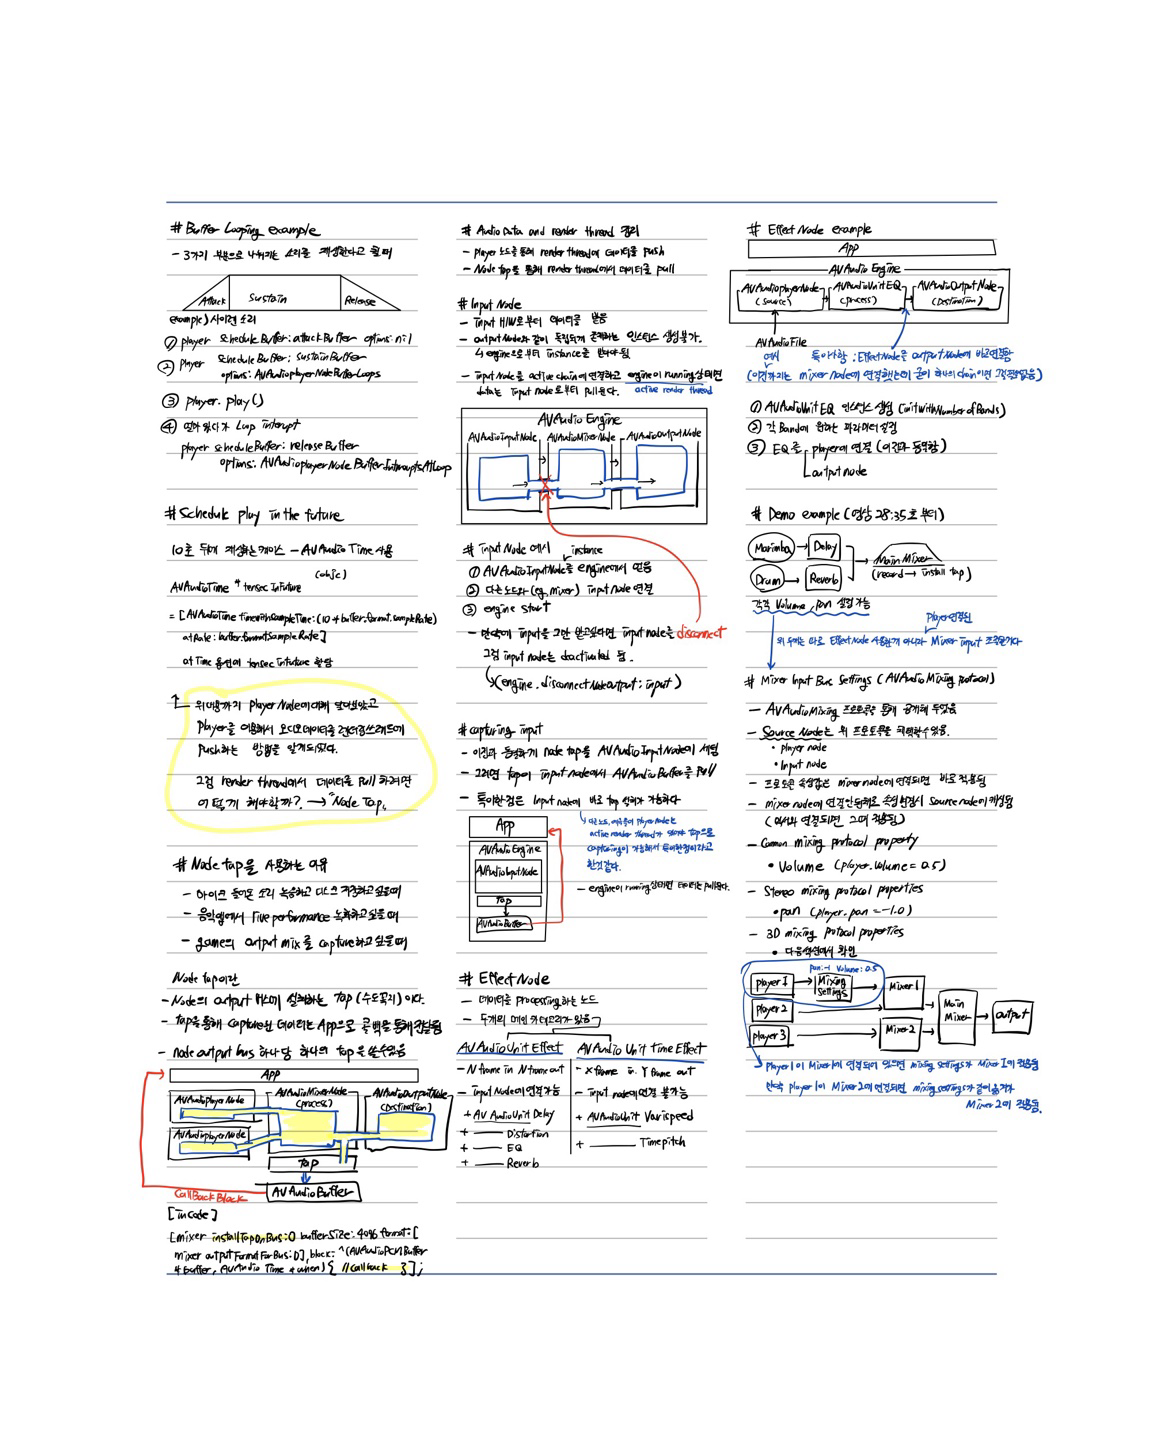 # Buffer Looping example
- 3가지 부분으로 나뉘는 소리를 재생한다고 할 때
Attack
Sustain
Release
example) 사이렌 소리
① player scheduleBuffer: attackBuffer options: nil
② player scheduleBuffer: sustainBuffer
options: AVAudioplayerNodeBufferLoops
③ player. play()
④ loop interupt
player scheduleBuffer: releaseBuffer
options: AVAudioplayerNodeBufferInterruptsAtLoop
# Schedule play in the future
10초 뒤에 재생하는 케이스 - AVAudioTime 사용
(objc)
AVAudioTime * tensecInFuture
= [AVAudioTime timewithsampleTime: (10 * buffer.format.sampleRate)
atRate: buffer.format.sampleRate]
atTime 옵션에 tensecInfuture 할당
위 내용까지 Player Node에 대해 알아보았고
Player를 이용해서 오디오데이터를 렌더링쓰레드에
push하는 방법을 알게되었다.
그럼 render thread에서 데이터를 pull 하려면
어떻게 해야할까? → "Node Tap"
# Node tap을 사용하는 이유
- 마이크 들어온 소리 녹음하고 디스크 저장하고 싶을때
- 음악앱에서 live performance 녹화하고 싶을 때
- game의 output mix를 capture하고 싶을 때
Node tap이란
- Node의 output 버스에 설치하는 Tap (수도꼭지) 이다.
- tap을 통해 capture된 데이터는 App으로 콜백을 통해 전달됨
- node output bus 하나당 하나의 tap을 쓸 수 있음
App
AVAudioplayerNode
AVAudioplayerNode
AVAudioMixerNode
(process)
AVAudioOutputNode
(Destination)
Tap
AVAudioBuffer
CallBack Block
[incode]
[mixer installTapOnBus:0 bufferSize: 4096 format: [
mixer outputFormatForBus:0], block: ^(AVAudioPCMBuffer
*buffer, AVAudioTime *when) { //callback }];
# Audio Data and render thread 정리
- player 노드를 통해 render thread에 데이터를 push
- Node tap을 통해 render thread에서 데이터를 pull
# Input Node
- Input H/W로부터 데이터를 받음
- output Node와 같이 독립되게 존재하는 인스턴스 생성불가.
↳ engine으로부터 instance를 받아야됨
- input Node를 active chain에 연결하고 engine이 running상태면
data는 input node로부터 pull된다.
active render thread
AVAudio Engine
AVAudioInputNode
AVAudioMixerNode
AVAudioOutputNode
# input Node 예시
instance
① AVAudioInputNode를 engine에서 얻음
② 다른 노드와(eg. mixer) input Node 연결
③ engine start
- 만약에 input을 그만 받고싶다면 input node를 disconnect
그럼 input node는 deactivated 됨.
(engine. disconnectNodeOutput: input)
# capturing input
- 이전과 동일하게 node tap을 AVAudioInputNode에 세팅
- 그러면 tap이 input node에서 AVAudioBuffer를 pull
- 특이한점은 input node에 바로 tap 설치가 가능하다
App
AVAudioEngine
AVAudioInputNode
Tap
AVAudioBuffer
capturing이 가능해서 특이한점이라고
한것같다.
- engine이 running상태면 데이터는 pull된다.
# Effect Node
- 데이터를 processing하는 노드
- 두개의 메인 카테고리가 있음
AVAudioUnitEffect
- N frame in N frame out
- input Node에 연결가능
+ AVAudioUnit Delay
+ —— Distortion
+ —— EQ
+ —— Reverb
AVAudio Unit Time Effect
- X frame in Y frame out
- input node에 연결 불가능
+ AVAudioUnit Varispeed
+ —— Timepitch
# Effect Node example
App
AVAudio Engine
AVAudioplayerNode
(source)
AVAudioUnitEQ
(process)
AVAudioOutputNode
(Destination)
AVAudioFile
예시
특이사항: EffectNode를 outputNode에 바로연결함
(이전까지는 mixer node에 연결했는데 굳이 하나의 chain이면 그럴필요없음)
① AVAudioUnitEQ 인스턴스 생성 (initWithNumberofBands)
② 각 Band에 원하는 파라미터 설정
③ EQ를 player에 연결 (이전과 동일함)
output node
# Demo example (영상 28:35초부터)
Marimba
Delay
Drum
Reverb
Main Mixer
(record → install tap)
각각 Volume, pan 설정 가능
Player에연결된
위 두개는 따로 EffectNode 사용한게 아니라 Mixer input 조절한거다
# Mixer Input Bus Settings (AVAudioMixing protocol)
- AVAudioMixing 프로토콜을 통해 공개돼 두었음
- Source Node는 위 프로토콜을 채택하고있음.
• player node
• Input node
- 프로토콜 속성값은 mixer node에 연결되면 바로 적용됨
- mixer node에 연결안된채로 속성변경시 Source node에 캐싱됨
(믹서와 연결되면 그때 적용됨)
- Common mixing protocol property
• Volume (player.volume = 0.5)
- Stereo mixing protocol properties
• pan (player.pan = -1.0)
- 3D mixing protocol properties
• 다음섹션에서 확인
pan:-1 Volume:0.5
player 1
Mixing Settings
Mixer 1
player 2
player 3
Mixer 2
Main Mixer
output
player1이 Mixer1에 연결되어 있으면 mixing settings가 Mixer 1에 적용됨
만약 player1이 Mixer2에 연결되면 mixing settings가 같이 옮겨가
Mixer2에 적용됨.